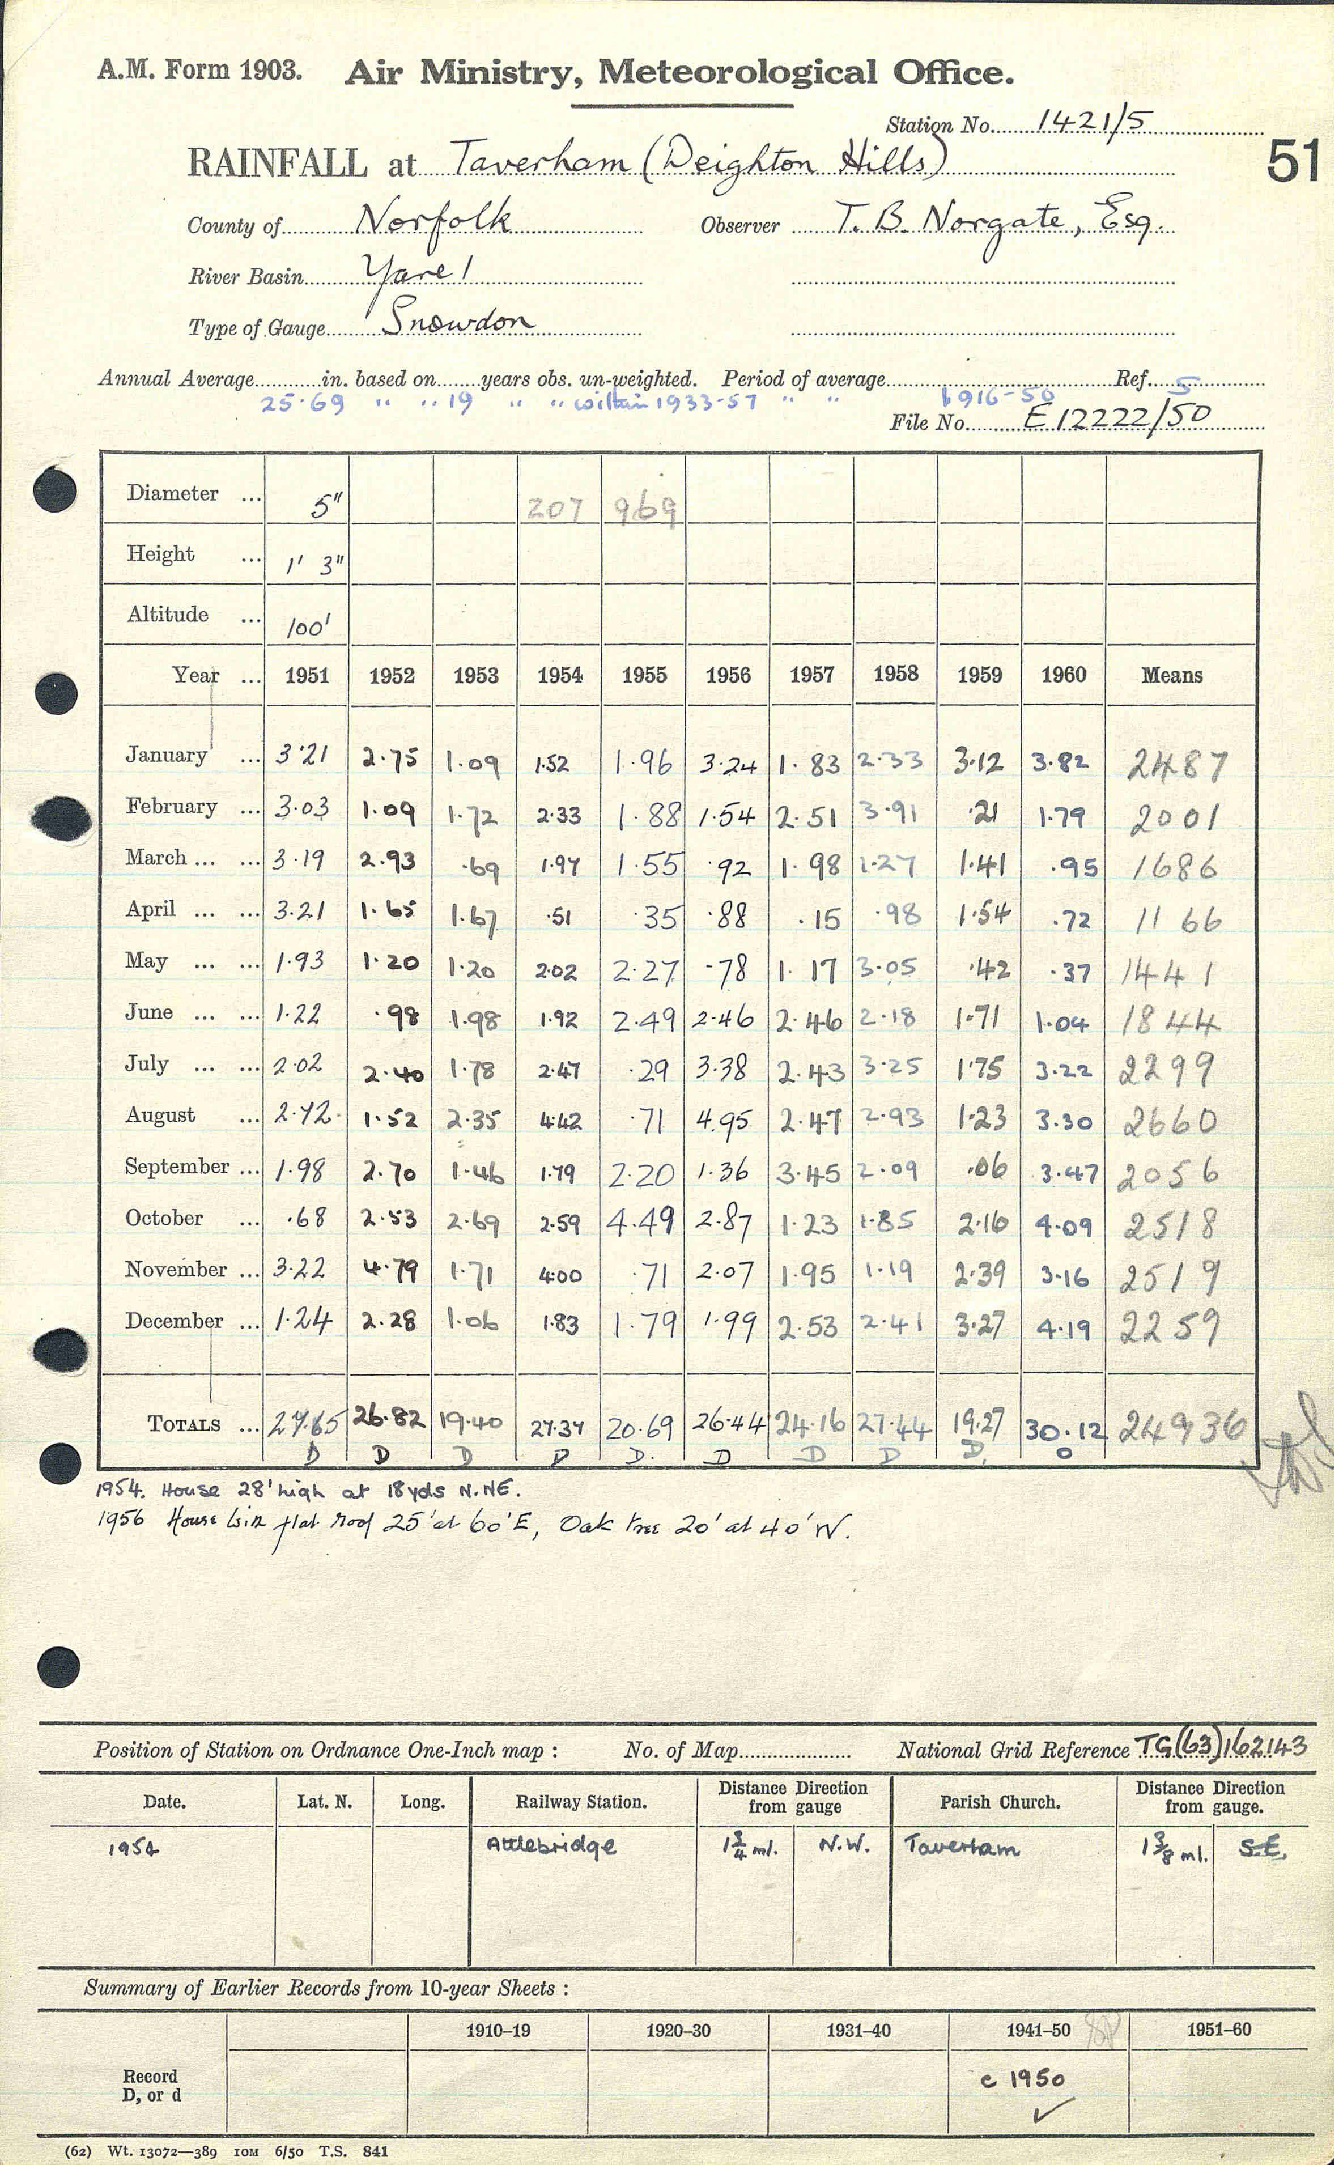 A.M. Form 1903. Air Ministry, Meteorological Office.
Station No. 1421/5
51
RAINFALL at Taverham (Deighton Hills)
County of Norfolk Observer T. B. Norgate, Esq.
River Basin Yare 1
Type of Gauge Snowdon
Annual Average in. based on years obs. un-weighted. Period of average Ref. 5
25.69 " " 19 " " within 1933-57 " " 1916-50
File No. E 12222/50
Diameter ... 5" 207 969
Height ... 1' 3"
Altitude ... 100'
Year ... 1951 1952 1953 1954 1955 1956 1957 1958 1959 1960 Means
January ... 3.21 2.75 1.09 1.52 1.96 3.24 1.83 2.33 3.12 3.82 2487
February ... 3.03 1.09 1.72 2.33 1.88 1.54 2.51 3.91 .21 1.79 2001
March ... ... 3.19 2.93 .69 1.97 1.55 .92 1.98 1.27 1.41 .95 1686
April ... ... 3.21 1.65 1.67 .51 .35 .88 .15 .98 1.54 .72 1166
May ... ... 1.93 1.20 1.20 2.02 2.27 .78 1.17 3.05 .42 .37 1441
June ... ... 1.22 .98 1.98 1.92 2.49 2.46 2.46 2.18 1.71 1.04 1844
July ... ... 2.02 2.40 1.78 2.47 .29 3.38 2.43 3.25 1.75 3.22 2299
August ... 2.72 1.52 2.35 4.42 .71 4.95 2.47 2.93 1.23 3.30 2660
September ... 1.98 2.70 1.46 1.79 2.20 1.36 3.45 2.09 .06 3.47 2056
October ... .68 2.53 2.69 2.59 4.49 2.87 1.23 1.85 2.16 4.09 2518
November ... 3.22 4.79 1.71 4.00 .71 2.07 1.95 1.19 2.39 3.16 2519
December ... 1.24 2.28 1.06 1.83 1.79 1.99 2.53 2.41 3.27 4.19 2259
TOTALS ... 27.65 26.82 19.40 27.37 20.69 26.44 24.16 27.44 19.27 30.12 24936
D D D D D. D D D D. D
1954. House 28' high at 18yds N.NE.
1956 House with flat roof 25' at 60' E, Oak tree 20' at 40' W.
Position of Station on Ordnance One-Inch map : No. of Map National Grid Reference TG(63)162143
Date. Lat. N. Long. Railway Station. Distance Direction from gauge Parish Church. Distance Direction from gauge.
1954 Attlebridge 1¾ ml. N.W. Taverham 1⅜ ml. S.E.
Summary of Earlier Records from 10-year Sheets :
1910–19 1920–30 1931–40 1941–50 1951–60
Record D, or d c 1950 ✓
(62) Wt. 13072—389 10M 6/50 T.S. 841